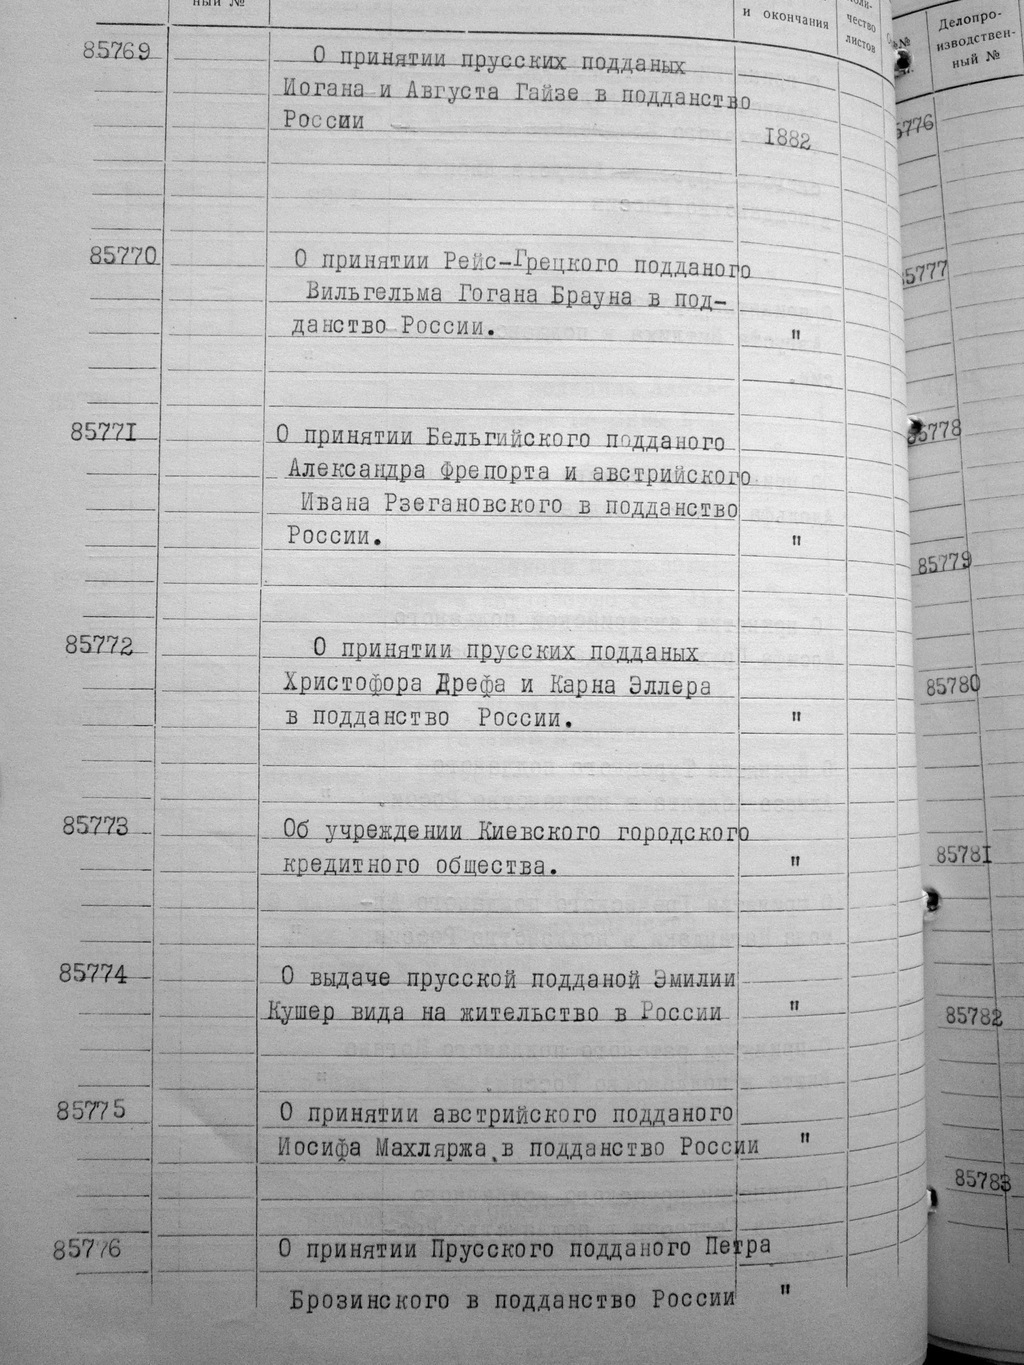 ный №
и окончания
чество
листов
85769
О принятии прусских подданых
Иогана и Августа Гайзе в подданство
России
1882
85770
О принятии Рейс-Грецкого подданого
Вильгельма Гогана Брауна в под-
данство России.
"
85771
О принятии Бельгийского подданого
Александра Фрепорта и австрийского
Ивана Рзегановского в подданство
России.
"
85772
О принятии прусских подданых
Христофора Дрефа и Карна Эллера
в подданство России.
"
85773
Об учреждении Киевского городского
кредитного общества.
"
85774
О выдаче прусской подданой Эмилии
Кушер вида на жительство в России
"
85775
О принятии австрийского подданого
Иосифа Махляржа в подданство России
"
85776
О принятии Прусского подданого Петра
Брозинского в подданство России
"
№
Делопро-
изводствен-
ный №
5776
5777
85778
85779
85780
85781
85782
85783